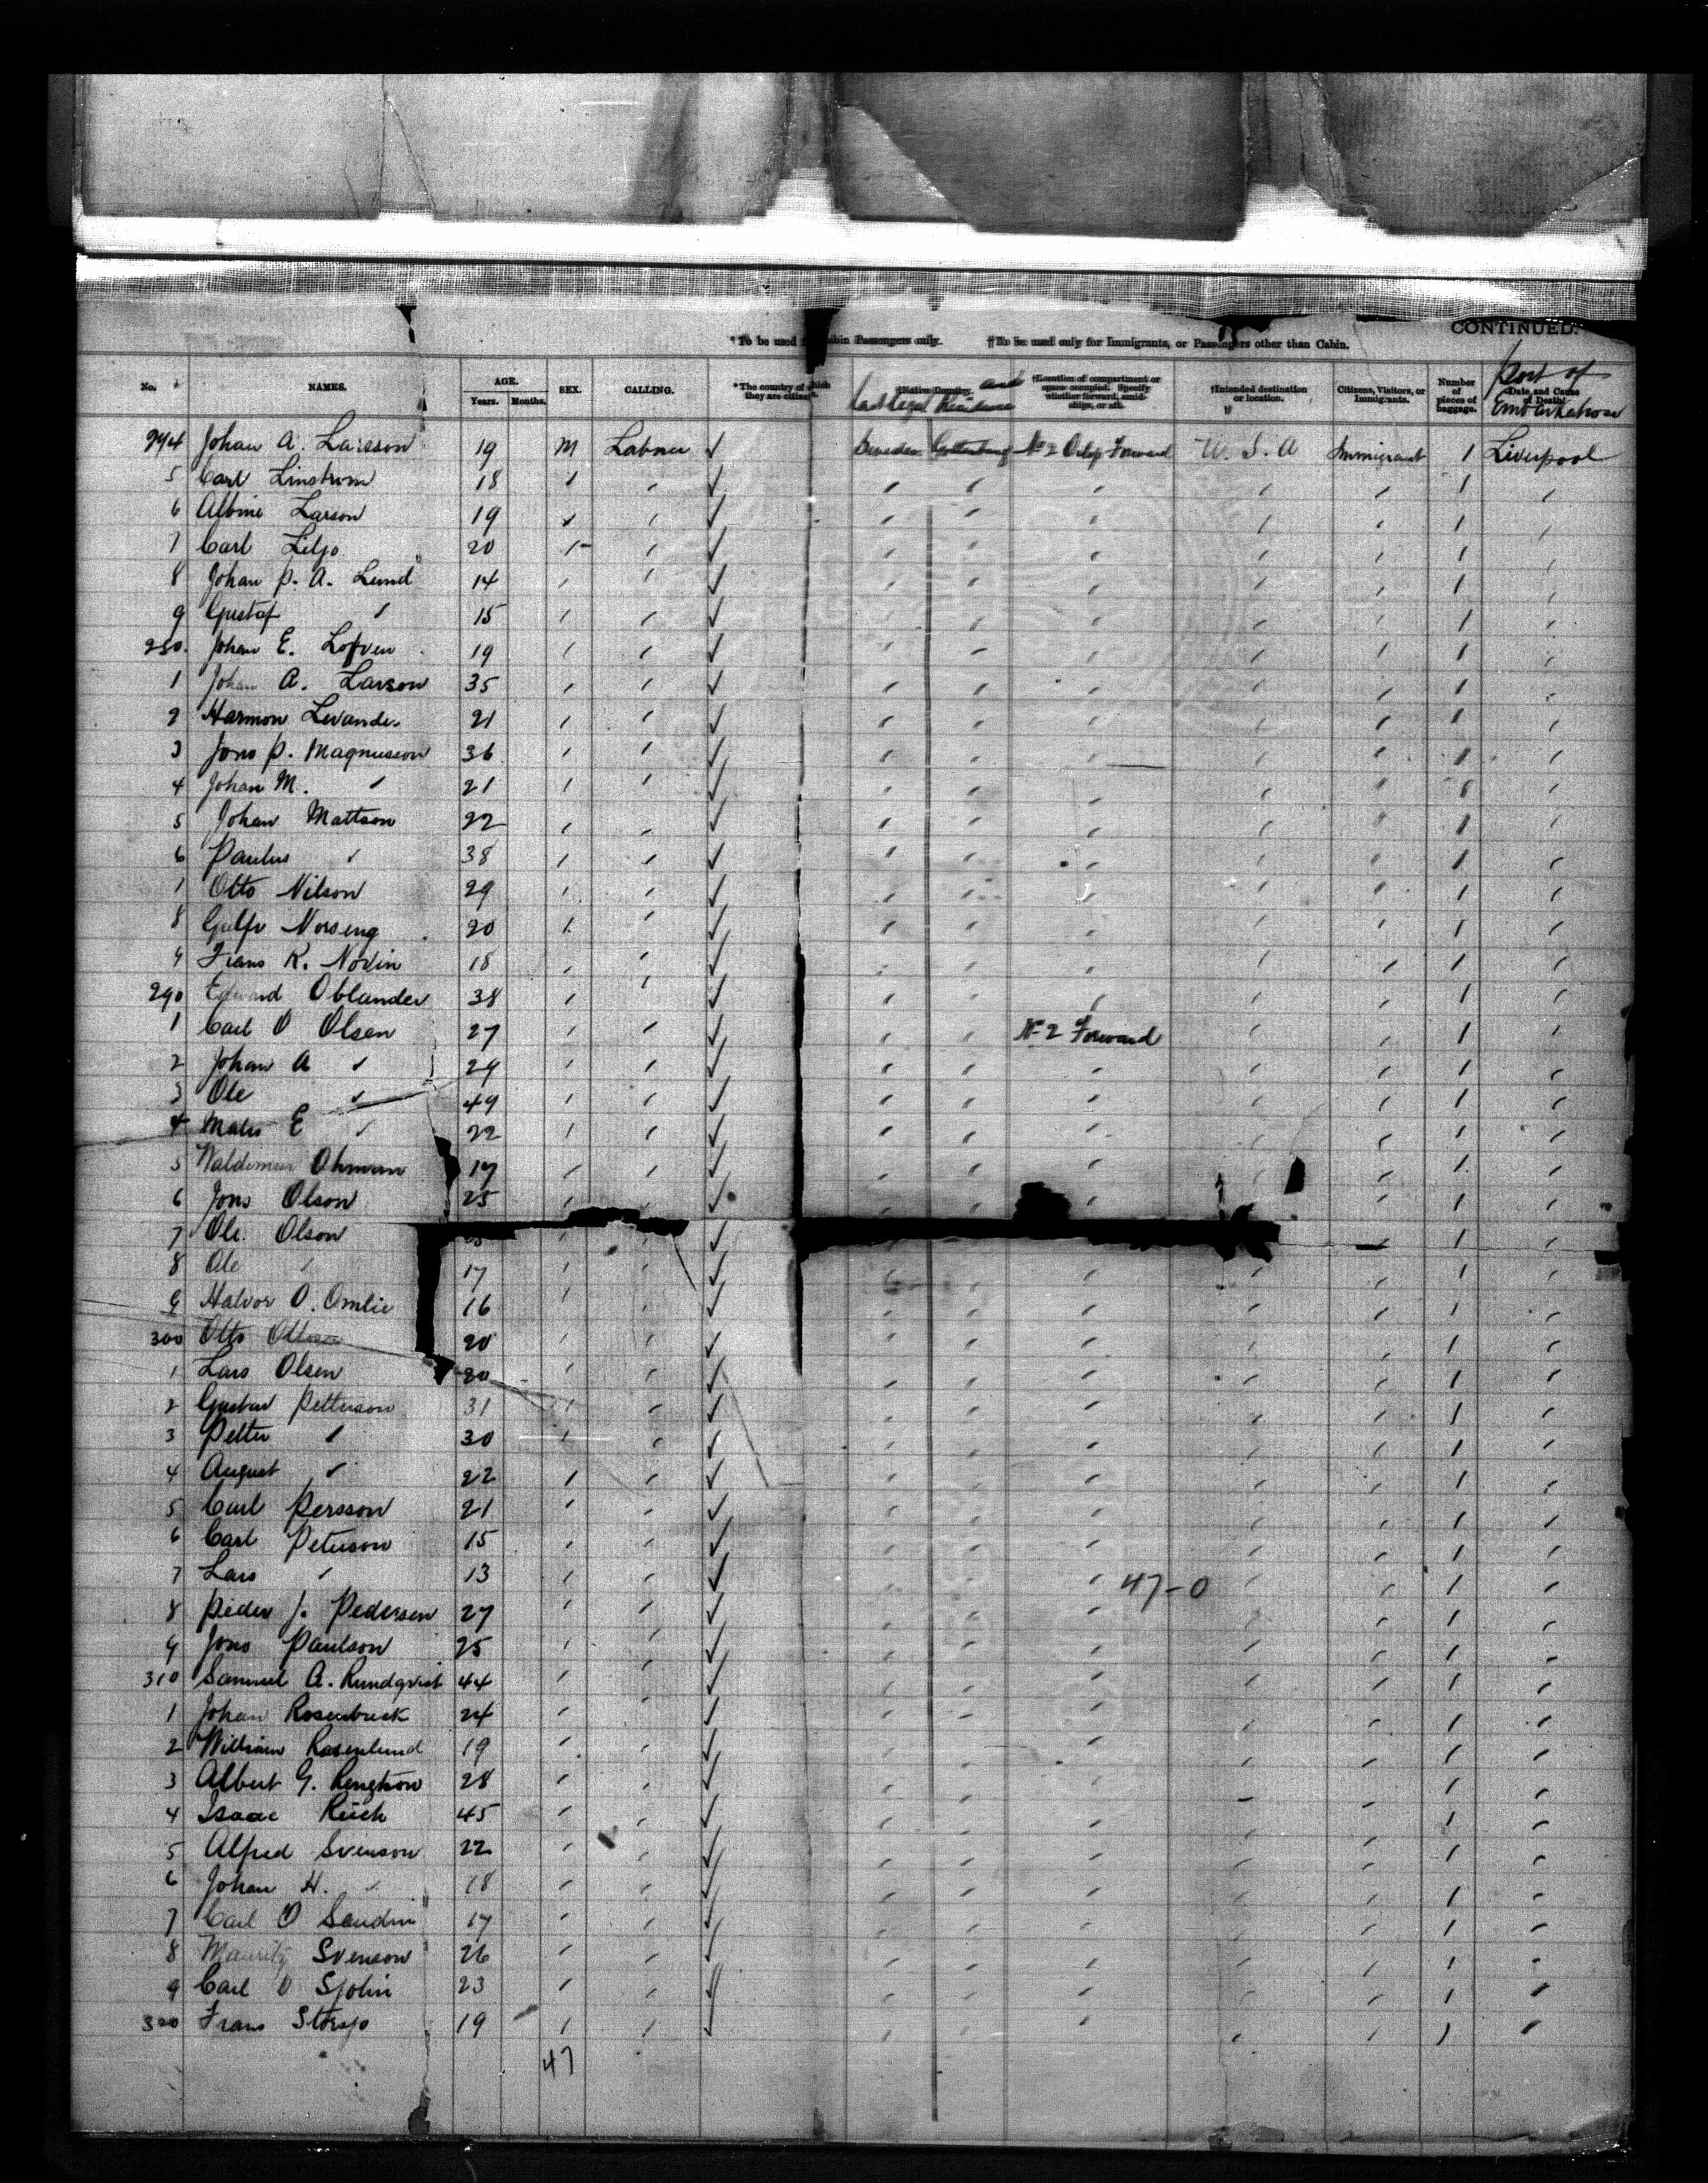 CONTINUED.
* To be used Cabin Passengers only. ‡To be used only for Immigrants, or Passengers other than Cabin.
No. NAMES. AGE. Years. Months. SEX. CALLING. * The country of which they are citizens. †Native Country and Last legal Residence †Location of compartment or space occupied. Specify whether forward, amidships, or aft. †Intended destination or location. Citizens, Visitors, or Immigrants. Number of pieces of baggage. Date and Cause of Death. Port of Embarkation
Johan A. Larsson 19 M Labourer ✓ Sweden Gottenburg No 2 Forward U. S. A Immigrant 1 Liverpool
5 Carl Linstrom 18 ✓ 1
6 Albine Larson 19 ✓ 1
7 Carl Liljo 20 ✓ 1
8 Johan P. A. Lund 14 ✓ 1
9 Gustaf " 15 ✓ 1
Johan E. Lofven 19 ✓ 1
1 Johan A. Larson 35 ✓ 1
2 Harmon Levander 21 ✓ 1
3 Jons P. Magnusson 36 ✓ 1
4 Johan M. " 21 ✓ 1
5 Johan Mattson 22 ✓ 1
6 Paulus " 38 ✓ 1
7 Otto Nilson 29 ✓ 1
8 Norseng 20 ✓ 1
9 Frans K. Novin 18 ✓ 1
290 Edward Oblander 38 ✓ 1
1 Carl O Olsen 27 ✓ No 2 Forward 1
2 Johan A " 29 ✓ 1
3 Ole " 49 ✓ 1
4 Mats E " 22 ✓ 1
5 Waldemar Ohman 17 ✓ 1
6 Jons Olson 25 ✓ 1
7 Ole Olson ✓ 1
8 Ole " 17 ✓ 1
9 Halvor O. Omlie 16 ✓ 1
300 Otto Ottosen 20 ✓ 1
1 Lars Olsen 20 ✓ 1
2 Gustav Petterson 31 ✓ 1
3 Petter " 30 ✓ 1
4 August " 22 ✓ 1
5 Carl Persson 21 ✓ 1
6 Carl Peterson 15 ✓ 1
7 Lars " 13 ✓ 47-0 1
8 Peder J. Pedersen 27 ✓ 1
9 Jons Paulson 25 ✓ 1
310 Samuel A. Rundqvist 44 ✓ 1
1 Johan Rosenbuck 24 ✓ 1
2 William Rosenlund 19 ✓ 1
3 Albert G. Rengtson 28 ✓ 1
4 Isaac Reich 45 ✓ 1
5 Alfred Svenson 22 ✓ 1
6 Johan H. " 18 ✓ 1
7 Carl O Sandin 17 ✓ 1
8 Mauritz Svenson 26 ✓ 1
9 Carl O Sjolin 23 ✓ 1
320 Frans Storsjo 19 ✓ 1
47